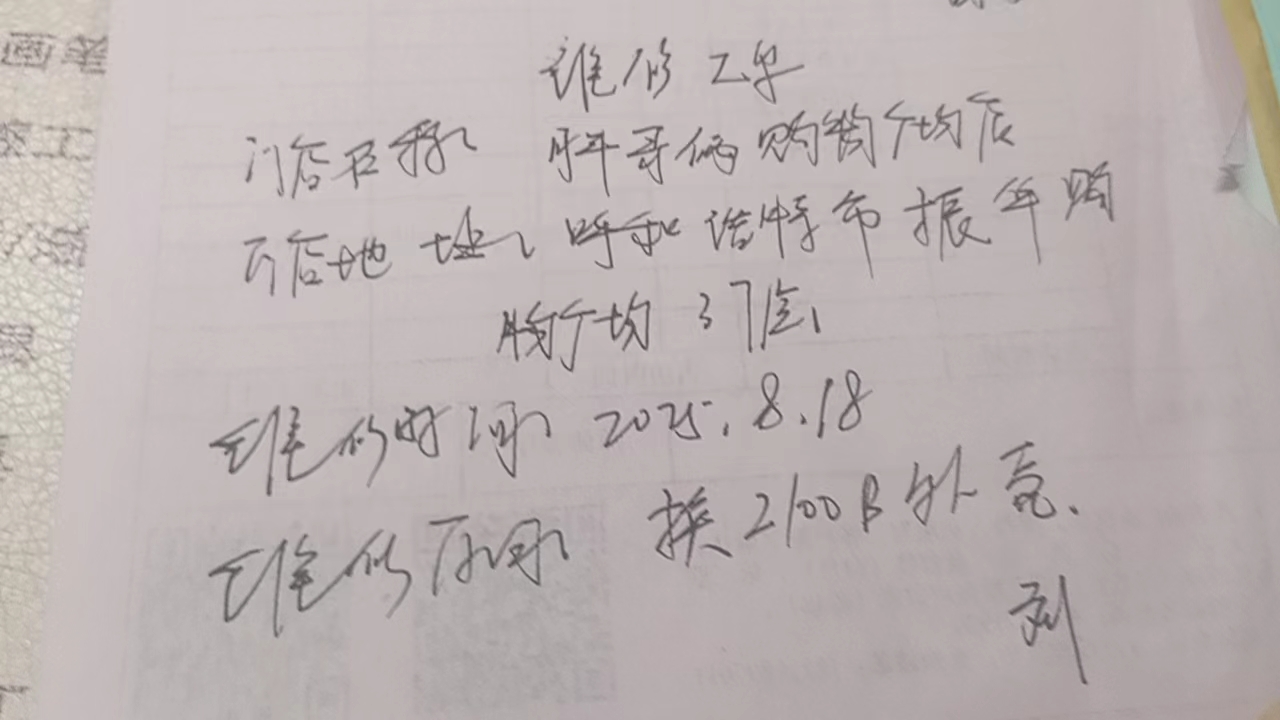 维修工单
门店名称、胖哥俩购物广场店
门店地址、呼和浩特市振华购
物广场3门店、
维修时间、2025.8.18
维修原因、换2100B外壳.
刘